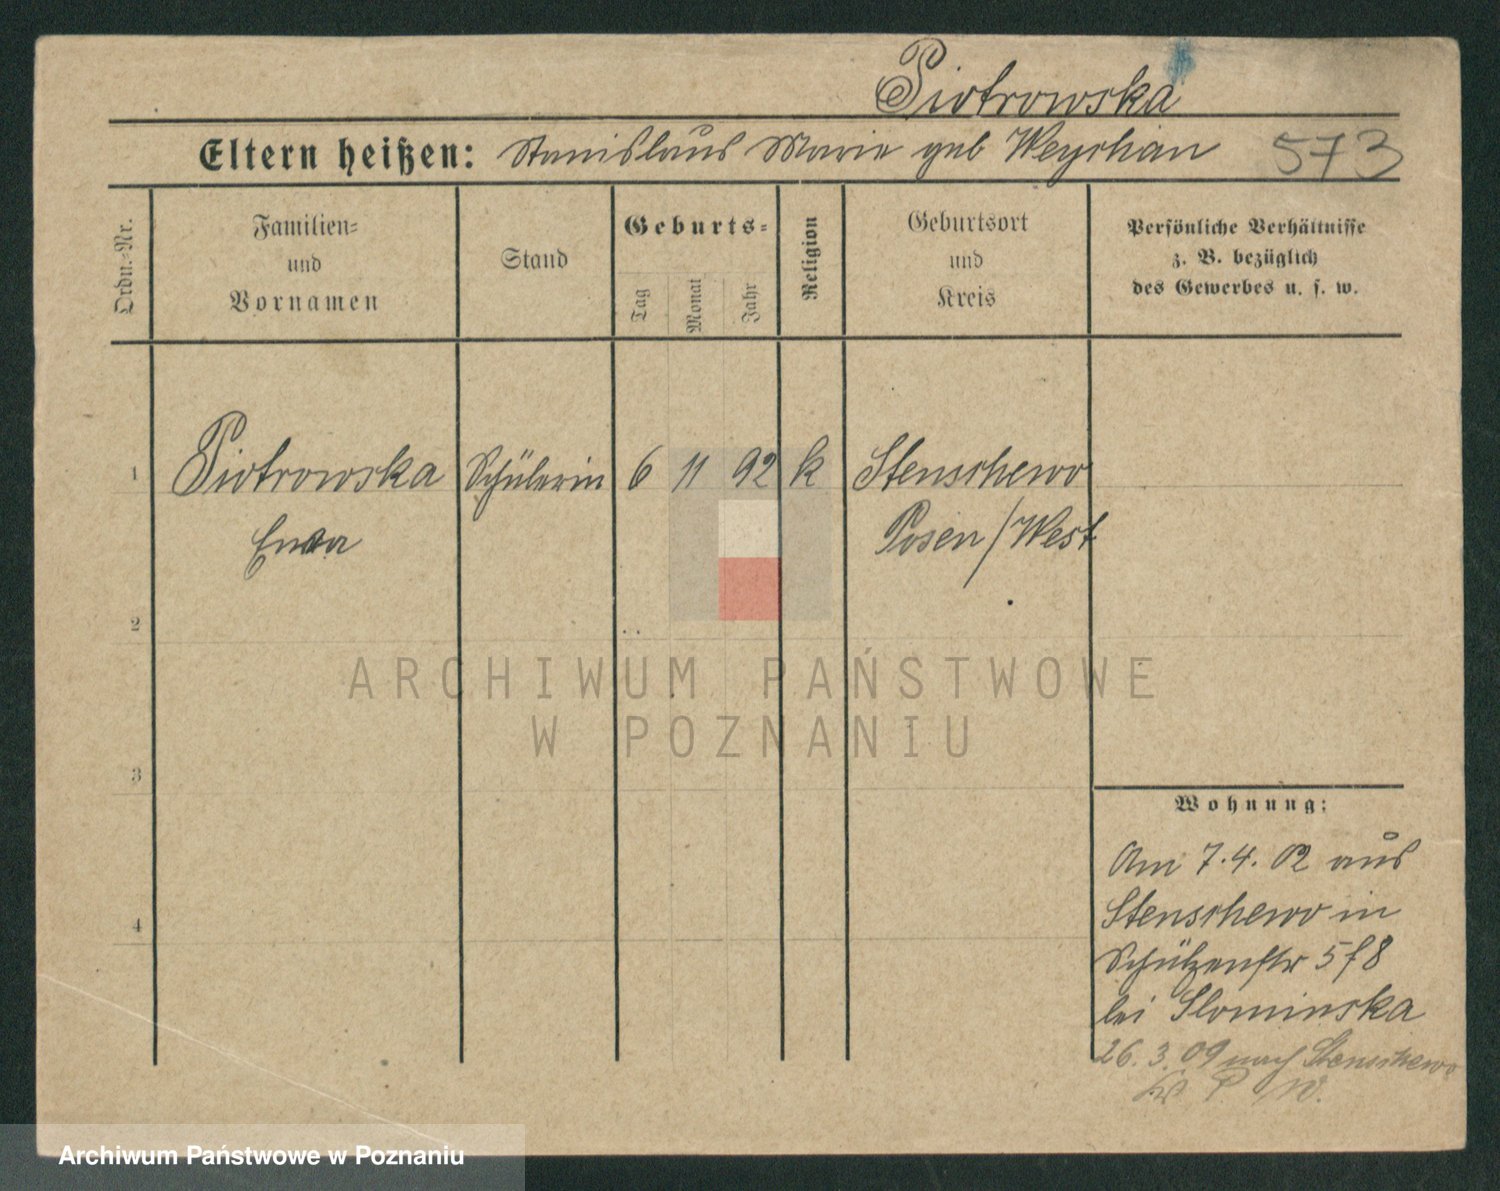 Piotrowska
Eltern heißen: Stanislaus Marie geb Weychan 573
Ordn.-Nr.
Familien-
und
Vornamen
Stand
Geburts-
Tag
Monat
Jahr
Religion
Geburtsort
und
Kreis
Persönliche Verhältnisse
z. B. bezüglich
des Gewerbes u. s. w.
1 Piotrowska Schülerin 6 11 92 k Stenschewo
Posen/West
2
3
4
Wohnung:
Am 7.4.02 aus
Stenschewo in
Schützenstr
bei Slominska
26.3.09 nach Stenschewo
P W.
ARCHIWUM PAŃSTWOWE
W POZNANIU
Archiwum Państwowe w Poznaniu